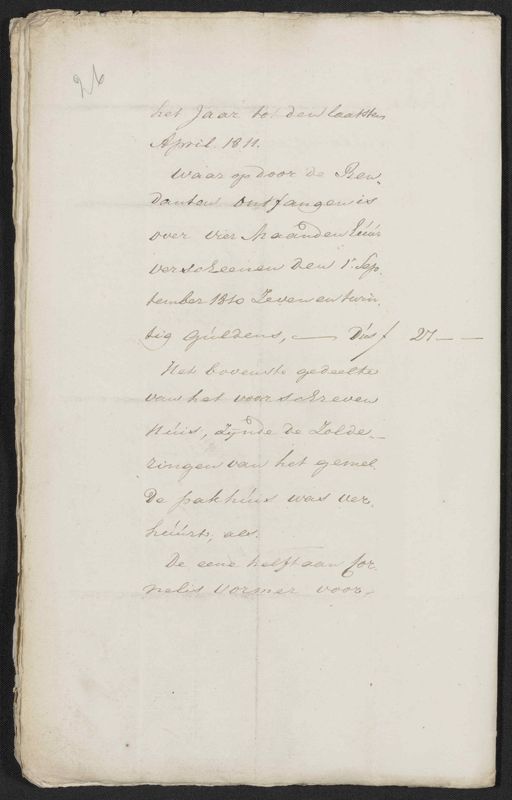 26
het Jaar tot den laatsten
April 1811.
Waar op door de Ren-
danten ontfangen is
over vier Maanden huur
verscheenen den 1e Sep-
tember 1810 Zeven en twin
tig guldens, — Dus f 27 — —
Het bovenste gedeelte
van het voorschreven
Huis, zijnde de Zolde-
ringen van het gemel
de pakhuis was ver-
huurt, als.
De eene helft aan Cor-
nelis Vormer voor